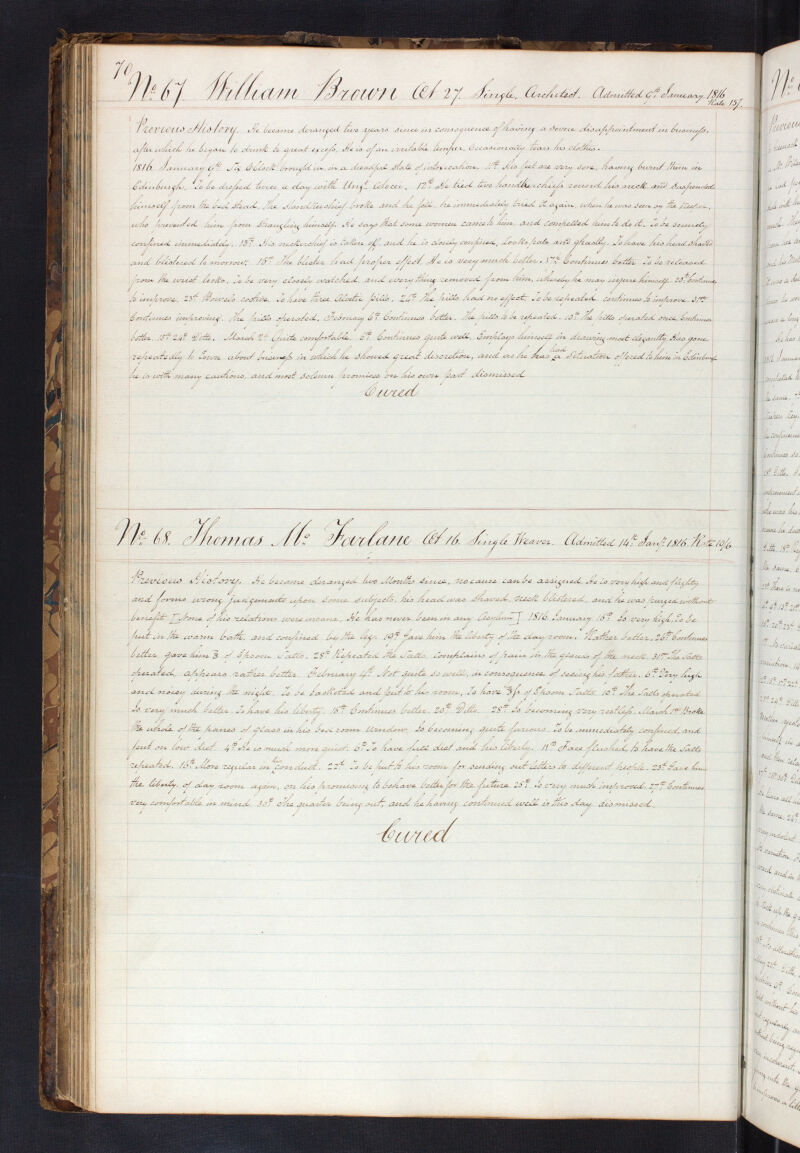 70
No. 67. William Brown Æt 27. Single. Architect. Admitted 9th January 1816
Rate 15/.
Previous History. He became deranged two years since in consequence of having a severe disappointment in business,
after which he began to drink to great excess, He is of an irritable temper. Occasionally tears his clothes.
1816. January 9th. Six O'Clock brought in, in a dreadful state of intoxication. His feet are very sore, having burnt them in
Edinburgh. To be dressed twice a day with Ungt. 12th He tied two handkerchiefs round his neck and suspended
himself from the bed stead. The Handkerchief broke and he fell, he immediately tried it again, when he was seen by the Keeper,
who prevented him from strangling himself. He says that some women came to him, and compelled him to do it. To be securely
confined immediately. His neckerchief is taken off, and he is closely confined, looks pale and ghastly. To have his head shaved
and blistered to morrow. 15th The blister had proper effect. He is very much better. 17th Continues better. To be released
from the wrist locks. To be very closely watched, and every thing removed from him, whereby he may injure himself. 20th Continues
to improve. 25th Bowels costive. To have three Aloetic pills. The pills had no effect. To be repeated. continues to improve. 31st
Continues improving. The pills operated. February 6th Continues better. The pills to be repeated. 10th The pills operated once. Continues
better. 15th 24th Ditto. March 2d Quite comfortable. 6th Continues quite well. Employs himself in drawing most elegantly. Has gone
repeatedly to Town about business in which he showed great discretion, and as he has had a situation offered to him in Edinburgh
he is with many cautions, and most solemn promises on his own part dismissed
Cured
No. 68. Thomas Mc Farlane Æt 16. Single Weaver. Admitted 14th Jany. 1816. Rate 10/6
Previous History. He became deranged two Months since, no cause can be assigned. He is very high and flighty
and forms wrong judgements upon some subjects, his head was shaved, neck blistered, and he was purged without
benefit [None of his relations were insane. He has never been in any Asylum] 1816. January 16th. Is very high, To be
put in the warm bath and confined by the leg. 19th Gave him the liberty of the day room. Rather better. 26th Continues
better gave him ℥ of Epsom Salts. 28th Repeated the Salts. complains of pain in the glands of the neck. 31st The Salts
operated, appears rather better. February 4th Not quite so well, in consequence of seeing his father. 6th Very high
and noisy during the night. To be bathed and put to his room, To have of Epsom Salts. 10th The Salts operated
Is very much better. To have his liberty. 16th Continues better. 20th Ditto. 28th Is becoming very restless. March 1st Broke
the whole of the panes of glass in his bed room window. Is becoming quite furious. To be immediately confined, and
put on low diet. 4th He is much more quiet. 6th To have full diet and his liberty. 11th Face flushed, to have the Salts
repeated. 16th More regular in his conduct. 22d To be put to his room for sending out letters to different people. 23d Gave him
the liberty of day room again, on his promising to behave better for the future. 25th Is very much improved. 27th Continues
very comfortable in mind. 30th The quarter being out, and he having continued well is this day dismissed.
Cured